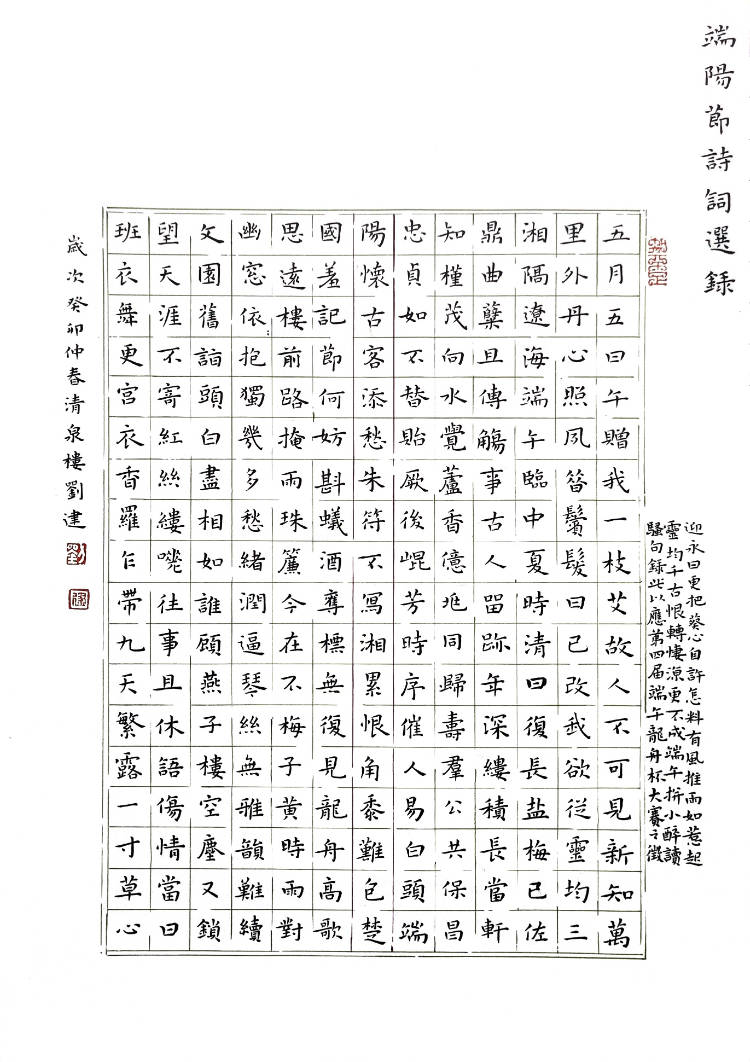 端陽節詩詞選錄
五月五日午贈我一枝艾故人不可見新知萬
里外丹心照夙昔鬢髮日已改我欲從靈均三
湘隔遼海端午臨中夏時清日復長盐梅已佐
鼎曲糵且傳觴事古人留跡年深縷積長當軒
知槿茂向水覺蘆香億兆同歸壽羣公共保昌
忠貞如不替貽厥後崐芳時序催人易白頭端
陽懷古客添愁朱符不寫湘累恨角黍難包楚
國羞記節何妨斟蟻酒奪標無復見龍舟高歌
思遠樓前路掩雨珠簾今在不梅子黃時雨對
幽窓依抱獨幾多愁緒潤逼琴絲無雅韻難續
文園舊詣頭白盡相如誰顧燕子樓空塵又鎖
望天涯不寄紅絲縷嘆往事且休語傷情當日
班衣舞更宮衣香羅乍帶九天繁露一寸草心
迎永日更把葵心自許怎料有風推雨如惹起
靈均千古恨轉悽涼更不成端午拚小醉讀
騷句錄此以應第四届端午龍舟杯大賽之徵
歲次癸卯仲春清泉樓劉建
劉